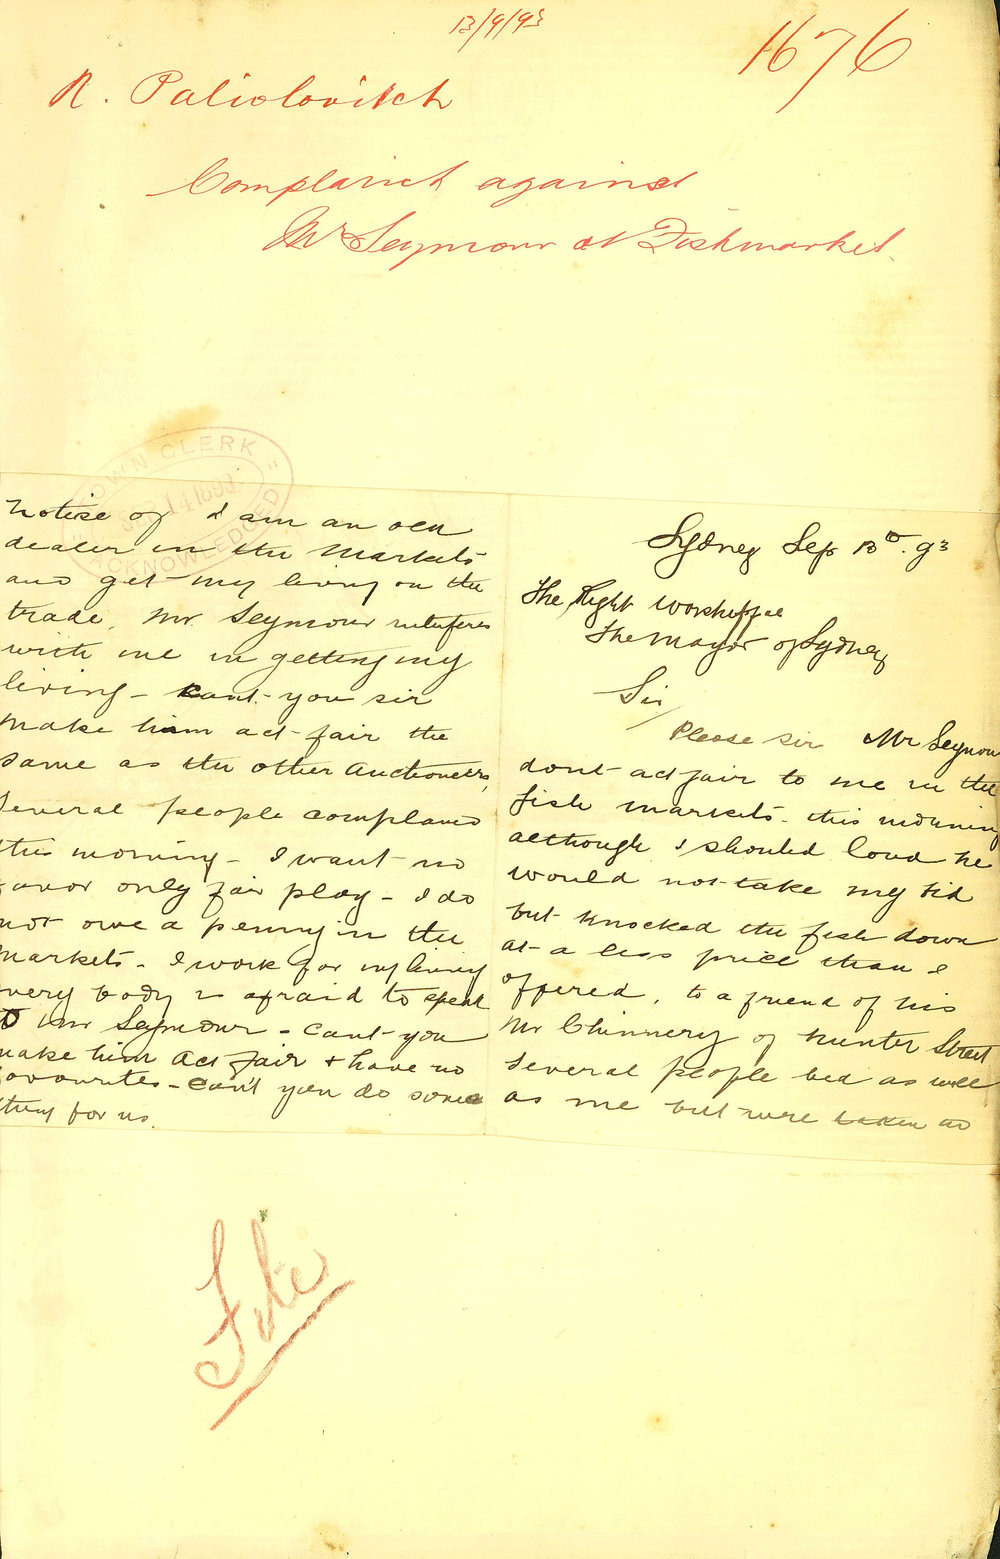 13/9/93
1676
R. Paliolovitch
Complaint against
Mr Seymour at Fishmarket.
TOWN CLERK
14 1893
ACKNOWLEDGED
Sydney Sep 13th. 93
The Right Worshipful
The Mayor of Sydney
Sir
Please sir Mr Seymour
dont act fair to me in the
fish markets - this morning
although I shouted loud he
would not take my bid
but knocked the fish down
at a less price than I
offered, to a friend of his
Mr Chinnery of Hunter Street
several people bid as well
as me but were taken no
notise of I am an old
dealer in the Markets
and get my living on the
trade. Mr Seymour interferes
with me in getting my
living - cant you sir
make him act fair the
same as the other Auctioneers,
Several people complaned
this morning - I want no
favor only fair play - I do
not owe a penny in the
markets - I work for my living
every body is afraid to speak
to Mr Seymour - cant you
make him act fair & have no
favourites - cant you do some
thing for us.
File